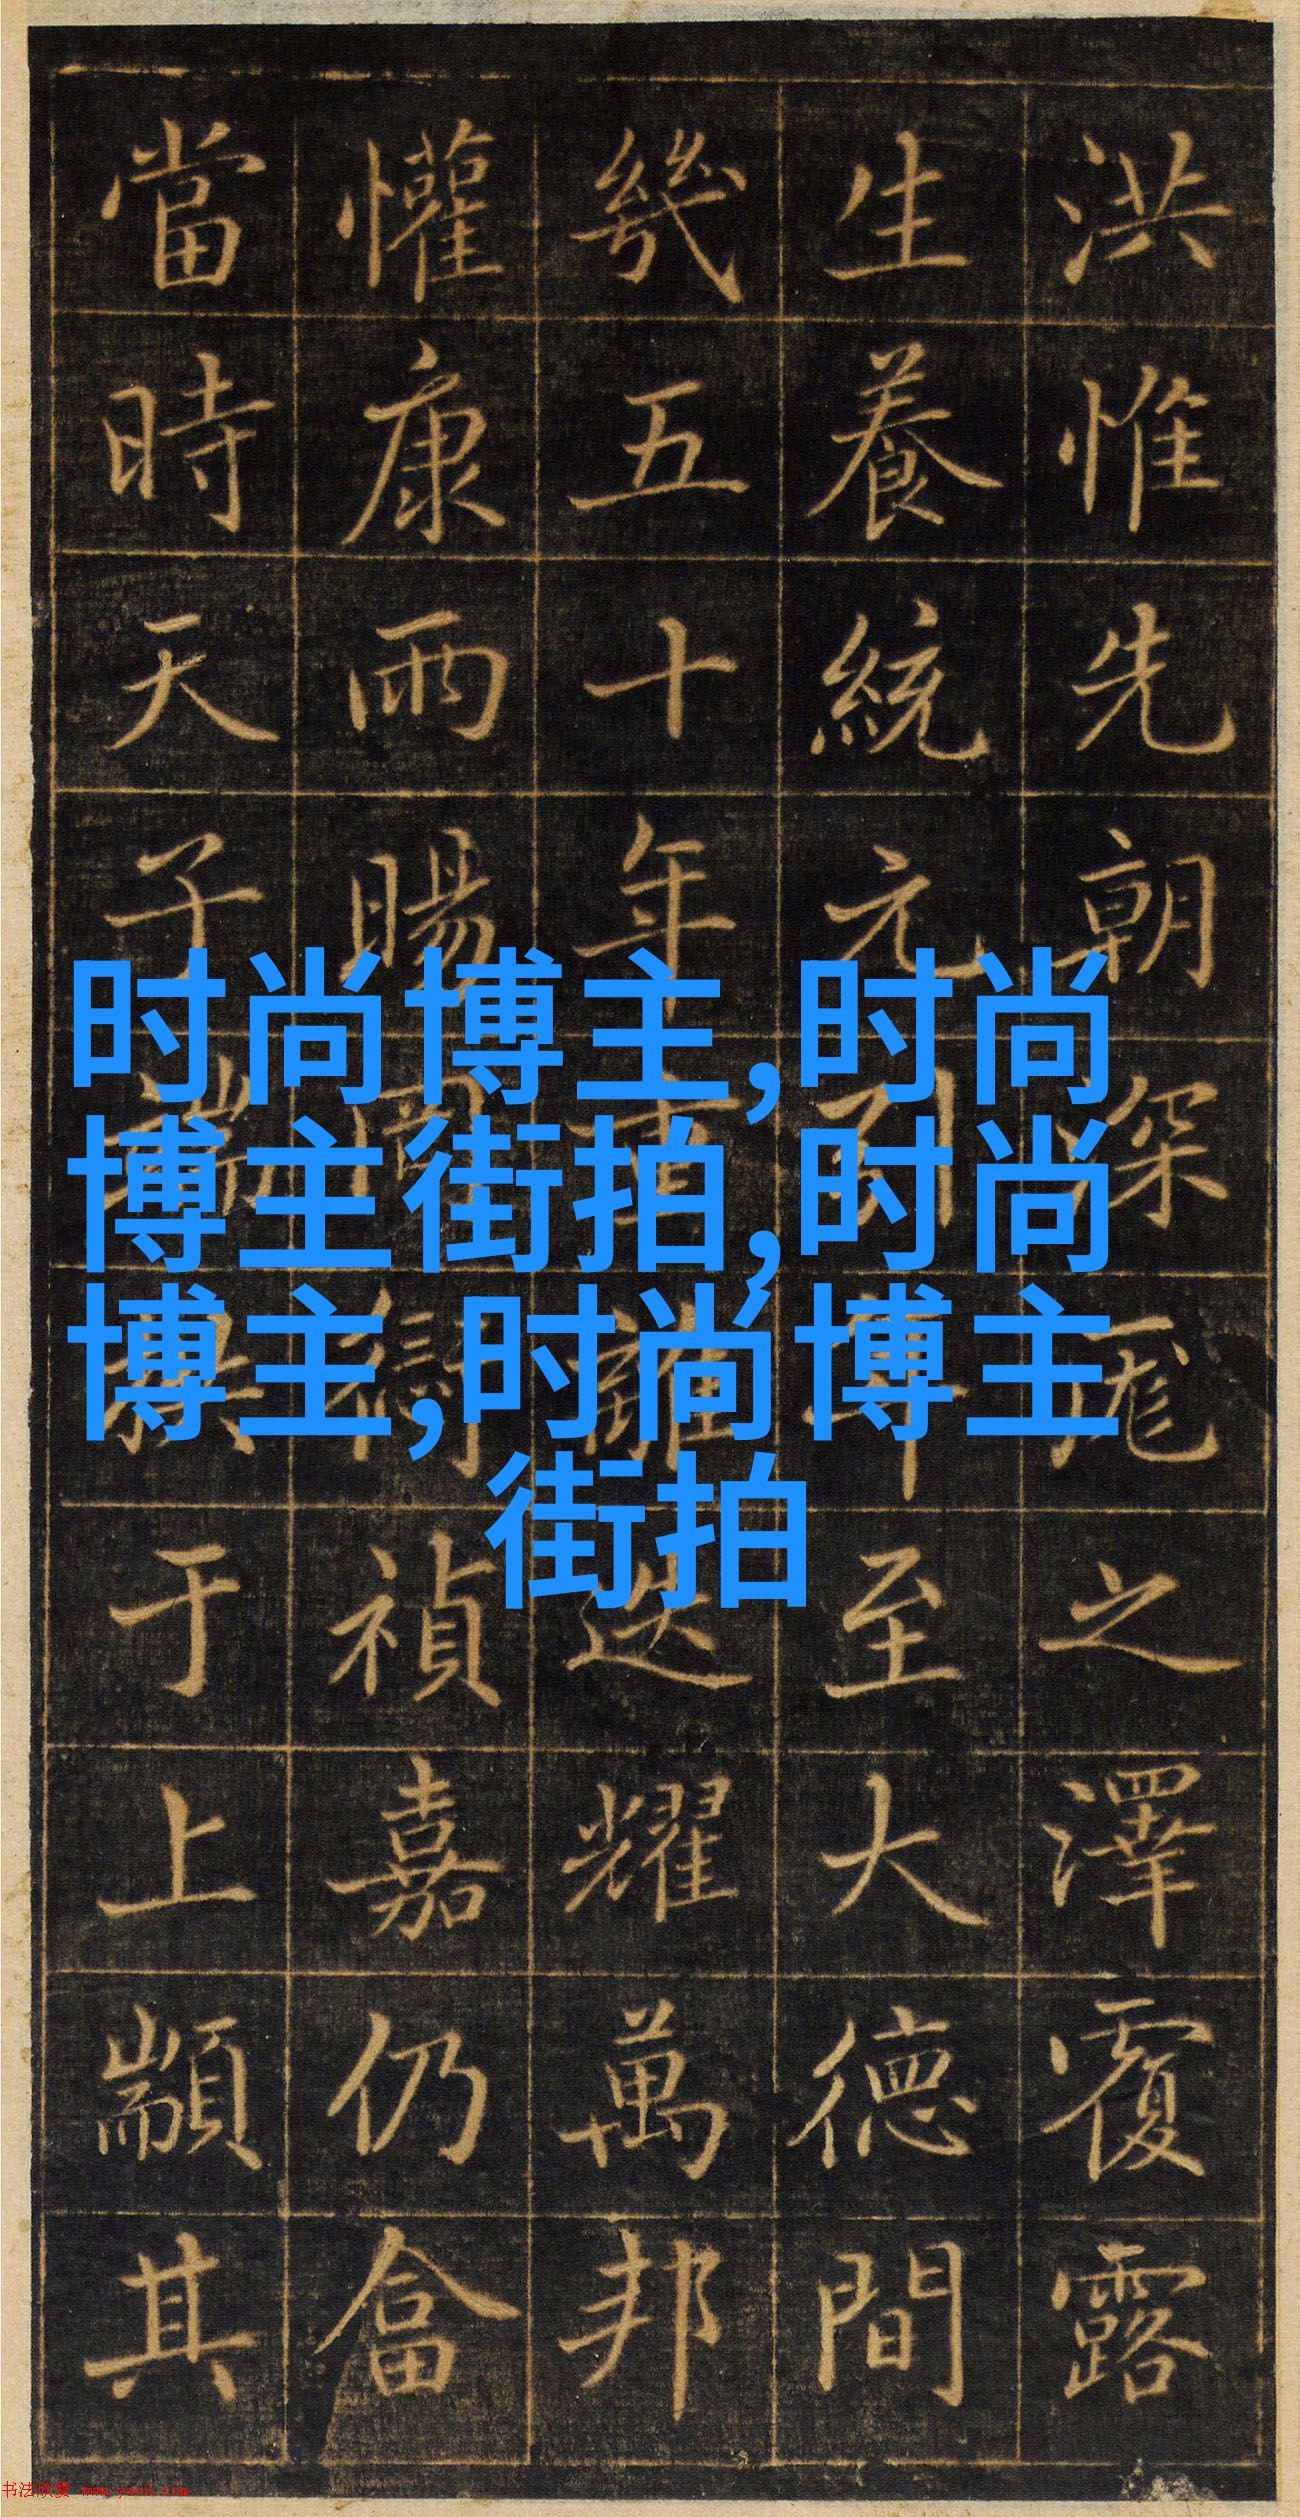 洪惟先朝深之澤覆露
生養統元至大德間
幾五十年重離迭耀萬邦
懽康雨暘禎嘉仍畣
當時天子端拱于上顓其
时尚博主,时尚
博主街拍,时尚
博主,时尚博主
街拍
书法欣赏 www.yac8.com